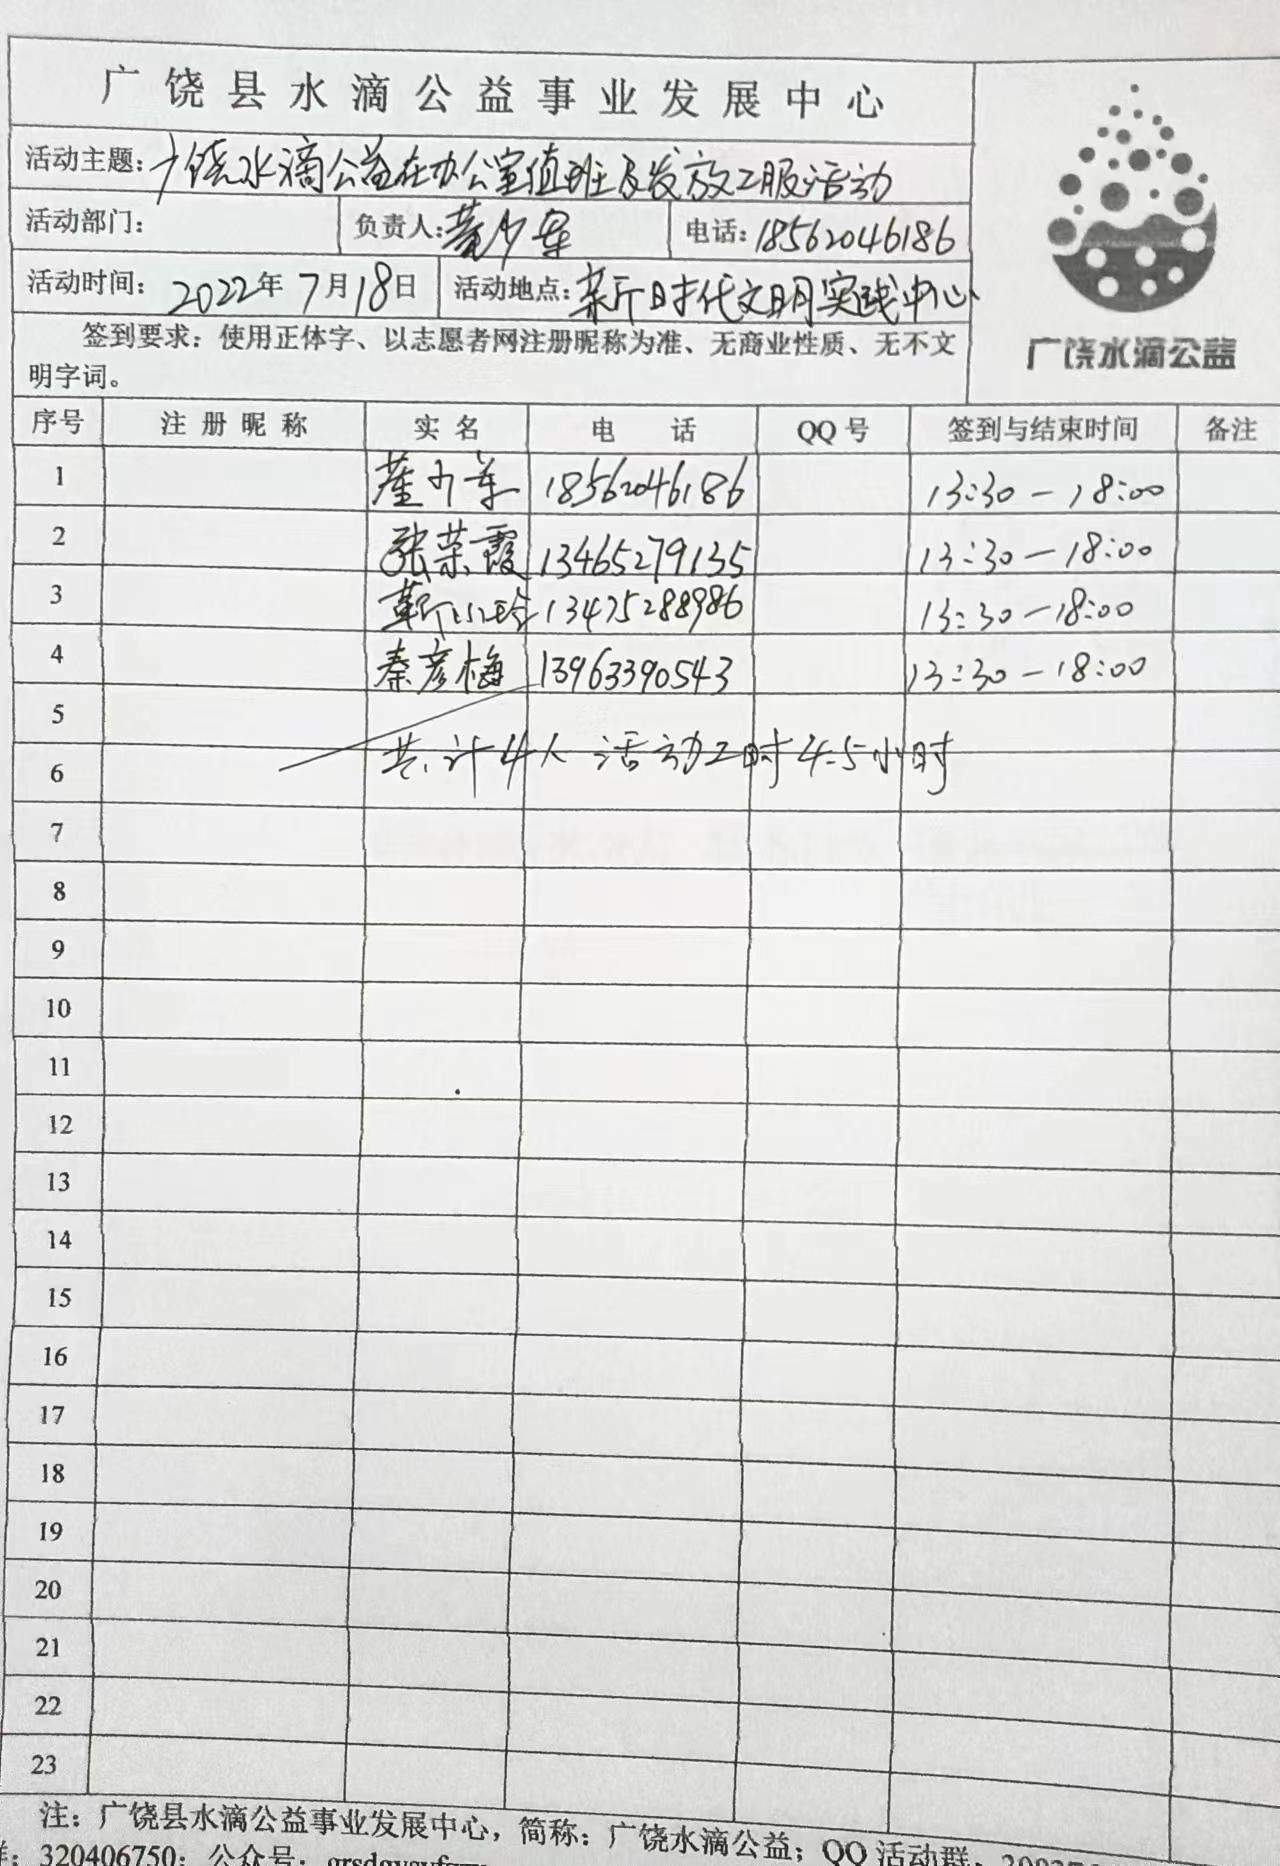 广饶县水滴公益事业发展中心
活动主题：广饶水滴公益在办公室值班及发放工服活动
活动部门： 负责人：董少军 电话：18562046186
活动时间：2022年7月18日 活动地点：新时代文明实践中心
签到要求：使用正体字、以志愿者网注册昵称为准、无商业性质、无不文
明字词。
广饶水滴公益
序号 注册昵称 实名 电话 QQ号 签到与结束时间 备注
1 董少军 18562046186 13:30-18:00
2 张荣霞 13465279135 13:30-18:00
3 靳小玲 13475288986 13:30-18:00
4 秦彦梅 13963390543 13:30-18:00
5
6 共计4人 活动工时4.5小时
7
8
9
10
11
12
13
14
15
16
17
18
19
20
21
22
23
注：广饶县水滴公益事业发展中心，简称：广饶水滴公益；QQ活动群：
群：320406750；公众号：